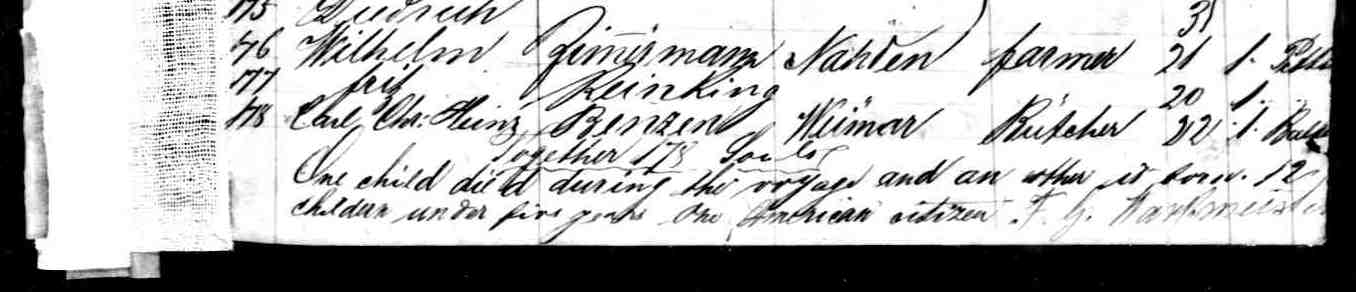 175 Diedrich 31
46 Wilhelm Zimmermann Nahden farmer 21 1.
177 fritz Reinking 20 1.
178 Carl Chr: Heinz Renzen Weimar Butcher 32 1. Balt
Together 178 Souls
One child died during the voyage and an other is born. 12
children under five years One American citizen F. G.